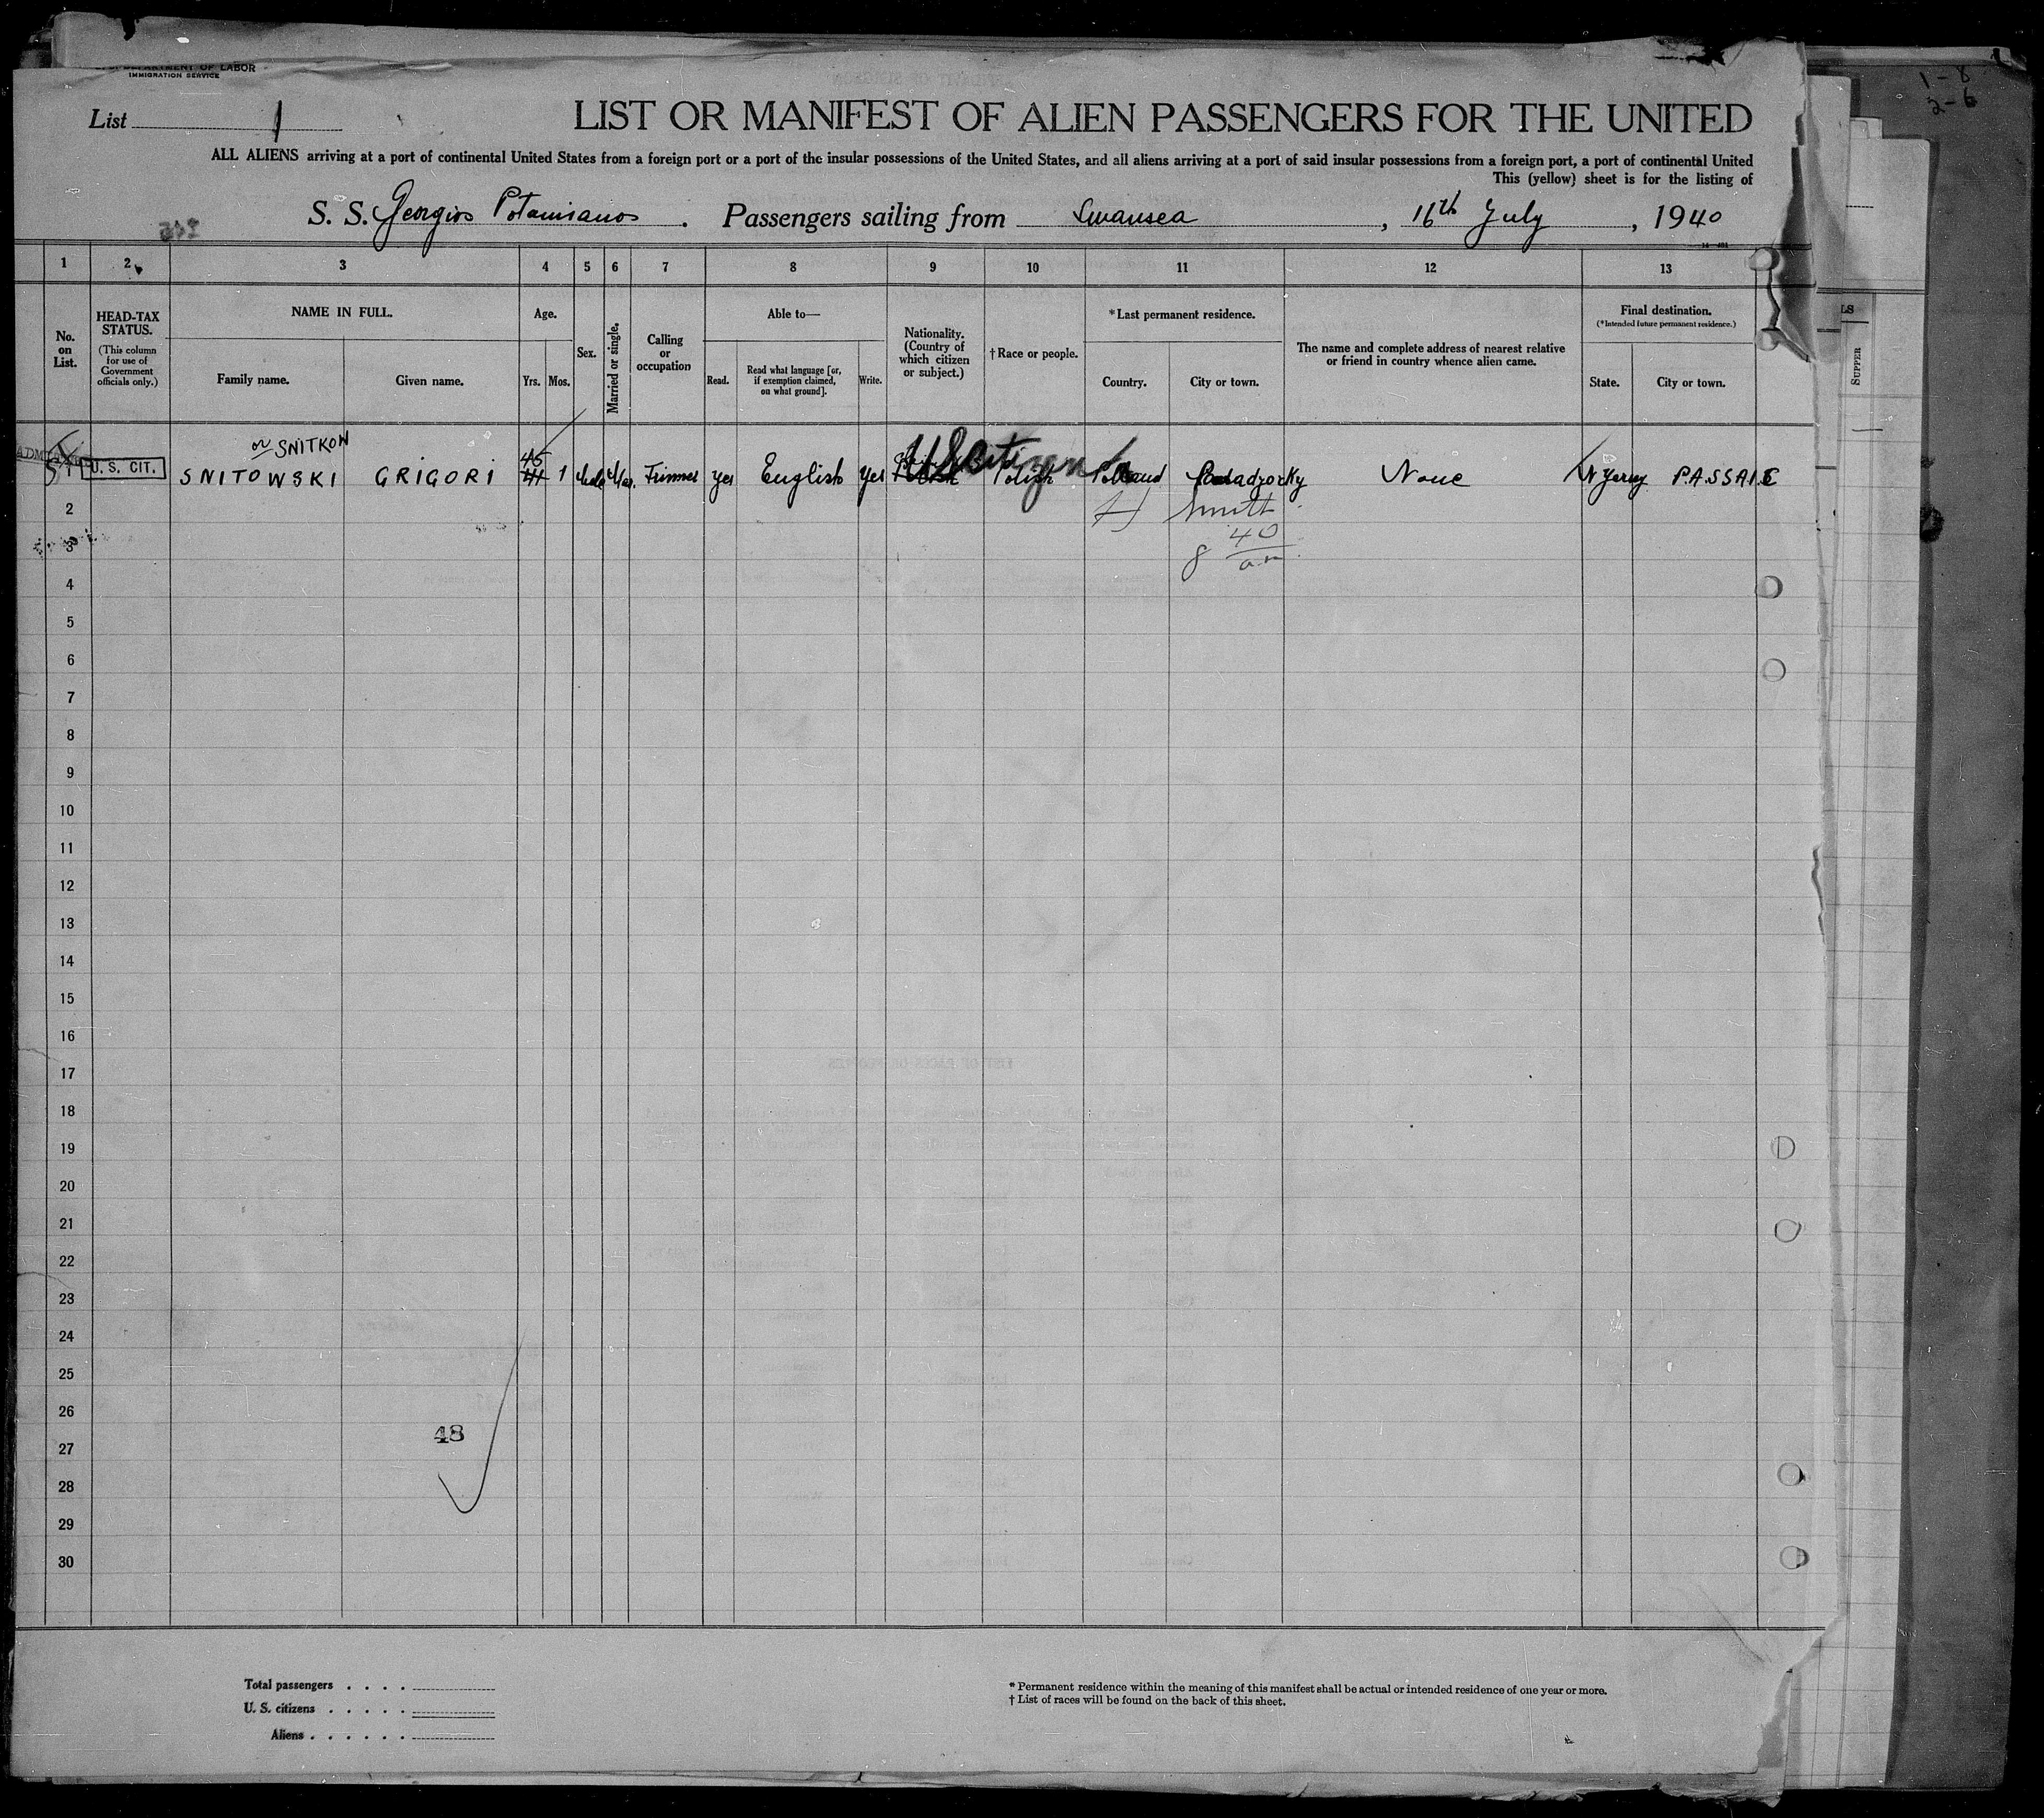 DEPARTMENT OF LABOR
IMMIGRATION SERVICE
1 - 8
2 - 6
List 1
LIST OR MANIFEST OF ALIEN PASSENGERS FOR THE UNITED
ALL ALIENS arriving at a port of continental United States from a foreign port or a port of the insular possessions of the United States, and all aliens arriving at a port of said insular possessions from a foreign port, a port of continental United
This (yellow) sheet is for the listing of
S. S. Georgios Potamianos . Passengers sailing from Swansea , 16th July , 1940
1 2 3 4 5 6 7 8 9 10 11 12 13
No. on List.
HEAD-TAX STATUS.
(This column for use of Government officials only.)
NAME IN FULL.
Family name. Given name.
Age.
Yrs. Mos.
Sex.
Married or single.
Calling or occupation
Able to—
Read. Read what language [or, if exemption claimed, on what ground]. Write.
Nationality. (Country of which citizen or subject.)
†Race or people.
*Last permanent residence.
Country. City or town.
The name and complete address of nearest relative or friend in country whence alien came.
Final destination.
(*Intended future permanent residence.)
State. City or town.
SUPPER
or SNITKOW
1 U. S. CIT. SNITOWSKI GRIGORI 45 44 1 Male Mar. Trimmer yes English yes US Citizen Polish Poland None N Jersey PASSAIC
2
3
40
8 am
4
5
6
7
8
9
10
11
12
13
14
15
16
17
18
19
20
21
22
23
24
25
26
27
48
28
29
30
Total passengers . . . .
U. S. citizens . . . . .
Aliens . . . . . .
* Permanent residence within the meaning of this manifest shall be actual or intended residence of one year or more.
† List of races will be found on the back of this sheet.